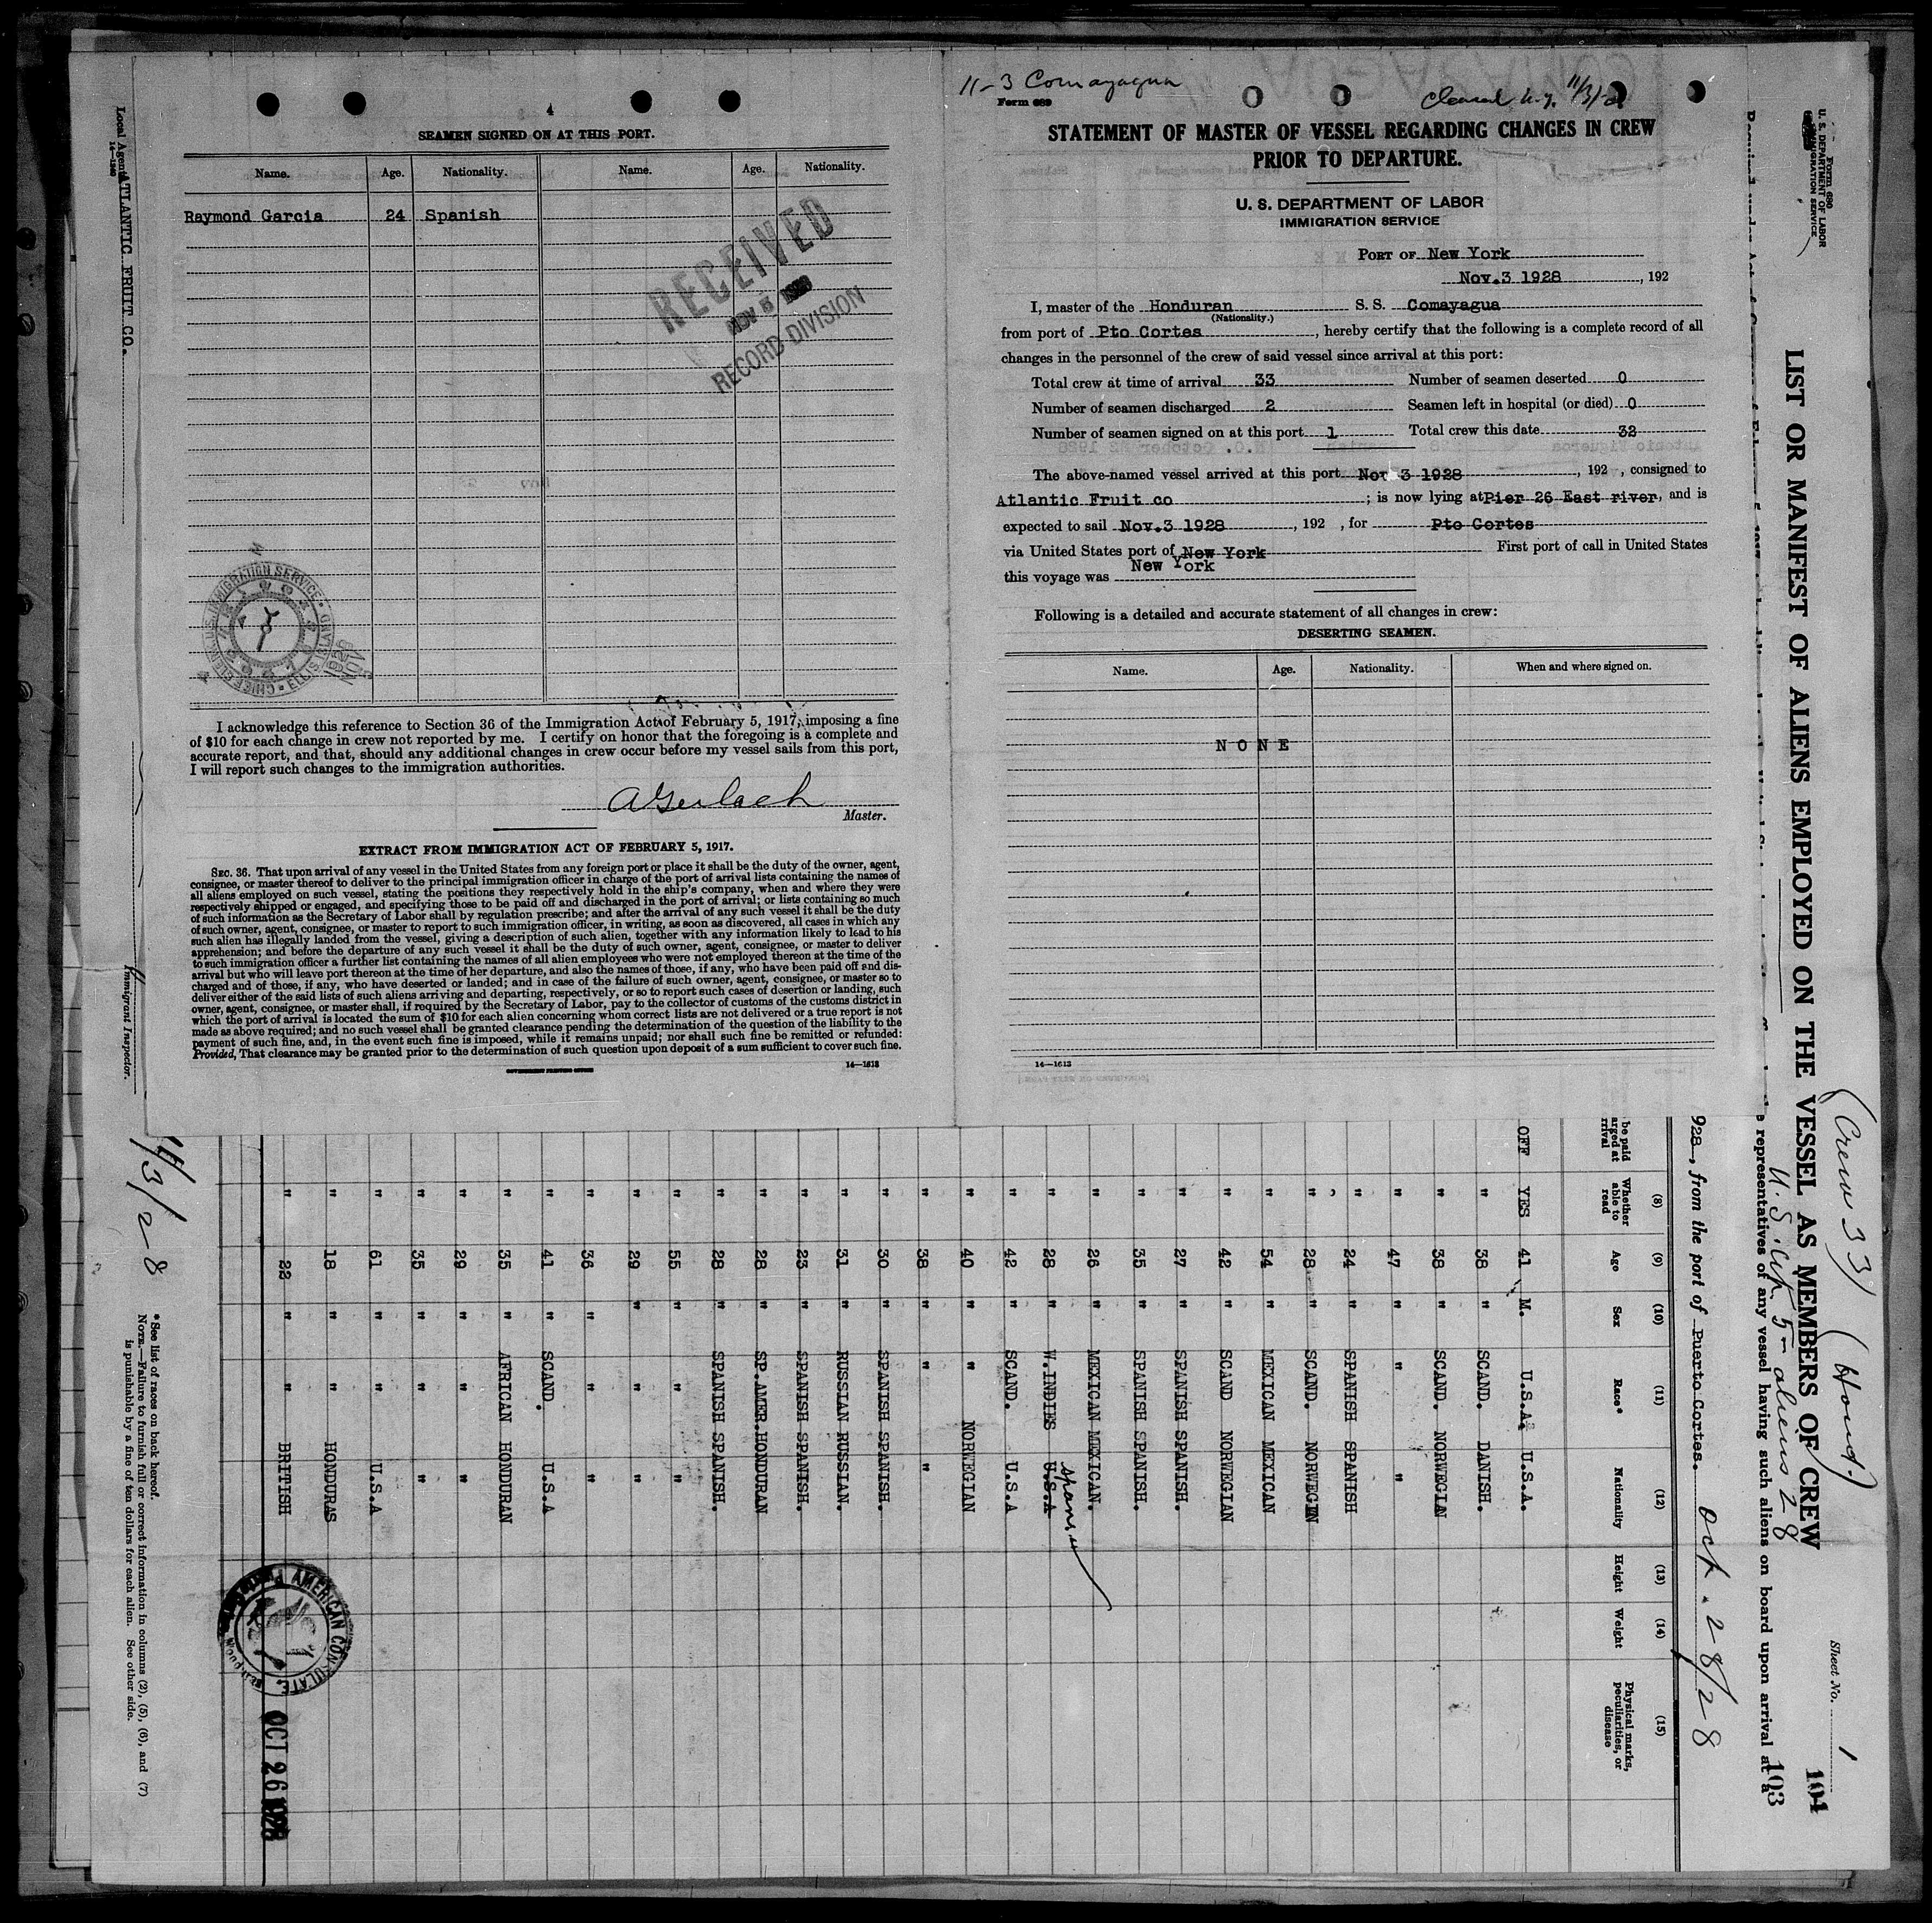 4
SEAMEN SIGNED ON AT THIS PORT.
Name. Age. Nationality. Name. Age. Nationality.
Raymond Garcia 24 Spanish
RECEIVED
NOV 5 1928
RECORD DIVISION
I acknowledge this reference to Section 36 of the Immigration Act of February 5, 1917, imposing a fine
of $10 for each change in crew not reported by me. I certify on honor that the foregoing is a complete and
accurate report, and that, should any additional changes in crew occur before my vessel sails from this port,
I will report such changes to the immigration authorities.
AGerlach
Master.
EXTRACT FROM IMMIGRATION ACT OF FEBRUARY 5, 1917.
SEC. 36. That upon arrival of any vessel in the United States from any foreign port or place it shall be the duty of the owner, agent,
consignee, or master thereof to deliver to the principal immigration officer in charge of the port of arrival lists containing the names of
all aliens employed on such vessel, stating the positions they respectively hold in the ship's company, when and where they were
respectively shipped or engaged, and specifying those to be paid off and discharged in the port of arrival; or lists containing so much
of such information as the Secretary of Labor shall by regulation prescribe; and after the arrival of any such vessel it shall be the duty
of such owner, agent, consignee, or master to report to such immigration officer, in writing, as soon as discovered, all cases in which any
such alien has illegally landed from the vessel, giving a description of such alien, together with any information likely to lead to his
apprehension; and before the departure of any such vessel it shall be the duty of such owner, agent, consignee, or master to deliver
to such immigration officer a further list containing the names of all alien employees who were not employed thereon at the time of the
arrival but who will leave port thereon at the time of her departure, and also the names of those, if any, who have been paid off and dis-
charged and of those, if any, who have deserted or landed; and in case of the failure of such owner, agent, consignee, or master so to
deliver either of the said lists of such aliens arriving and departing, respectively, or so to report such cases of desertion or landing, such
owner, agent, consignee, or master shall, if required by the Secretary of Labor, pay to the collector of customs of the customs district in
which the port of arrival is located the sum of $10 for each alien concerning whom correct lists are not delivered or a true report is not
made as above required; and no such vessel shall be granted clearance pending the determination of the question of the liability to the
payment of such fine, and, in the event such fine is imposed, while it remains unpaid; nor shall such fine be remitted or refunded:
Provided, That clearance may be granted prior to the determination of such question upon deposit of a sum sufficient to cover such fine.
GOVERNMENT PRINTING OFFICE 14—1613
11-3 Comayagua
Form 689
Cleared N.Y. 11/3/
STATEMENT OF MASTER OF VESSEL REGARDING CHANGES IN CREW
PRIOR TO DEPARTURE.
U. S. DEPARTMENT OF LABOR
IMMIGRATION SERVICE
PORT OF New York
Nov.3 1928, 192
I, master of the Honduran S. S. Comayagua
(Nationality.)
from port of Pto Cortes, hereby certify that the following is a complete record of all
changes in the personnel of the crew of said vessel since arrival at this port:
Total crew at time of arrival 33 Number of seamen deserted 0
Number of seamen discharged 2 Seamen left in hospital (or died) 0
Number of seamen signed on at this port 1 Total crew this date 32
The above-named vessel arrived at this port Nov 3 1928, 192 , consigned to
Atlantic Fruit co ; is now lying at Pier 26 East river, and is
expected to sail Nov.3 1928, 192 , for Pto Cortes
via United States port of New York First port of call in United States
this voyage was New York
Following is a detailed and accurate statement of all changes in crew:
DESERTING SEAMEN.
Name. Age. Nationality. When and where signed on.
NONE
14—1613
Local Agents ATLANTIC FRUIT CO.
14—1240
Immigrant Inspector.
11/3/28
Form 680
U. S. DEPARTMENT OF LABOR
IMMIGRATION SERVICE
(Crew 33) (Hond.)
Sheet No. 1
104
LIST OR MANIFEST OF ALIENS EMPLOYED ON THE VESSEL AS MEMBERS OF CREW
U.S. Cit 5- aliens 28
representatives of any vessel having such aliens on board upon arrival at a
103
928, from the port of Puerto Cortes. Oct. 28/28
(8) (9) (10) (11) (12) (13) (14) (15)
be paid
arged at
rrival
Whether able to read Age Sex Race* Nationality Height Weight Physical marks, peculiarities, or disease
OFF YES 41 M. U.S.A. U.S.A.
" 38 " SCAND. DANISH.
" 38 " SCAND. NORWEGIAN
" 47 " " "
" 24 " SPANISH SPANISH
" 28 " SCAND. NORWEGIN
" 54 " MEXICAN MEXICAN
" 42 " SCAND NORWEGIAN
" 27 " SPANISH SPANISH.
" 35 " SPANISH SPANISH.
" 26 " MEXICAN MEXICAN.
" 28 " W.INDIES U.S.A
" 42 " SCAND. U.S.A
" 40 " " NORWEGIAN
" 38 " " "
" 30 " SPANISH SPANISH.
" 31 " RUSSIAN RUSSIAN.
" 23 " SPANISH SPANISH.
" 28 " SP.AMER. HONDURAN
" 28 " SPANISH SPANISH.
" 55 " " "
" 29 " " "
" 36 " " "
" 41 " SCAND. U.S.A
" 35 " AFRICAN HONDURAN
" 29 " " "
" 35 " " "
" 61 " " U.S.A
" 18 " " HONDURAS
" 22 " " BRITISH
AMERICAN CONSULATE.
OCT 26 1928
*See list of races on back hereof.
NOTE.—Failure to furnish full or correct information in columns (2), (5), (6), and (7)
is punishable by a fine of ten dollars for each alien. See other side.